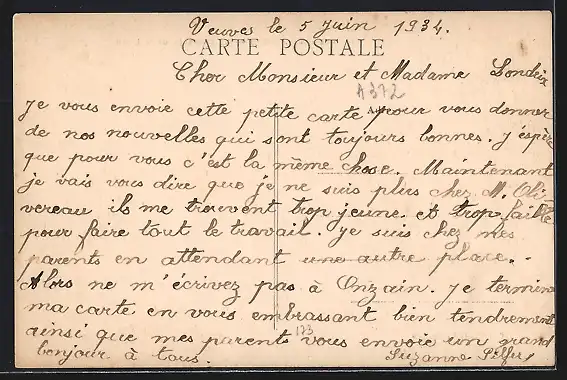 Veuves le 5 Juin 1934.
CARTE POSTALE
Cher Monsieur et Madame Londeix
A372
Je vous envoie cette petite carte pour vous donner
de nos nouvelles qui sont toujours bonnes. J'espère
que pour vous c'est la même chose. Maintenant
je vais vous dire que je ne suis plus chez M. Oli-
vereau ils me trouvent trop jeune et trop faible
pour faire tout le travail. Je suis chez mes
parents en attendant une autre place..
Alors ne m'écrivez pas à Onzain. Je termine
ma carte en vous embrassant bien tendrement
ainsi que mes parents vous envoie un grand
173
bonjour à tous.
Suzanne